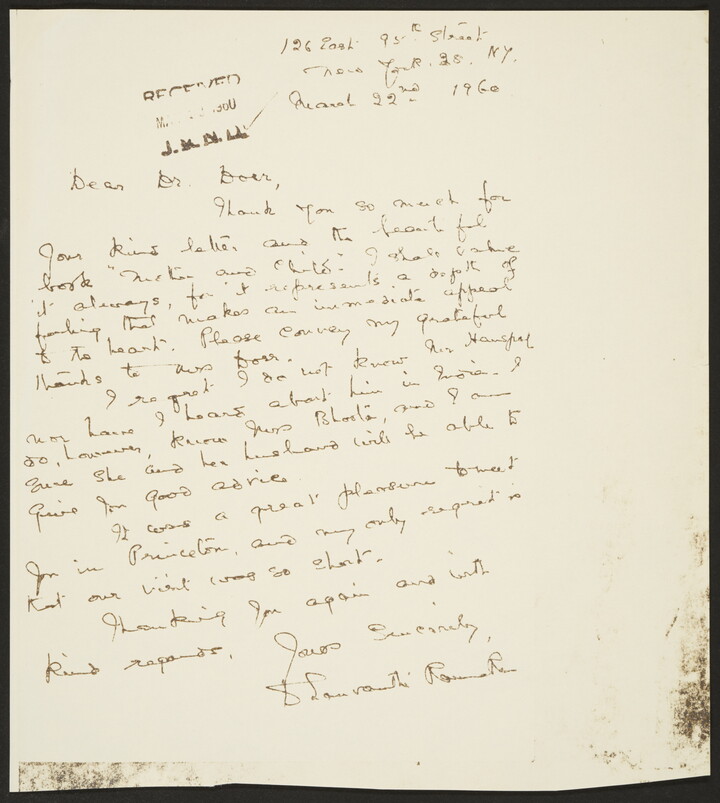 126 East 95th Street
New York. 28. NY.
March 22nd 1960
RECEIVED
Dear Dr. Doer,
Thank you so much for
your kind letter and the beautiful
book "Mother and Child". I shall value
it always, for it represents a depth of
feeling that makes an immediate appeal
to the heart. Please convey my grateful
thanks to Mrs Doer.
I regret I do not know Mr
nor have I heard about him in India. I
do, however, know Mrs and I am
sure she and her husband will be able to
give you good advice.
It was a great pleasure to meet
you in Princeton, and my only regret is
that our visit was so short.
Thanking you again and with
kind regards,
Yours Sincerely,